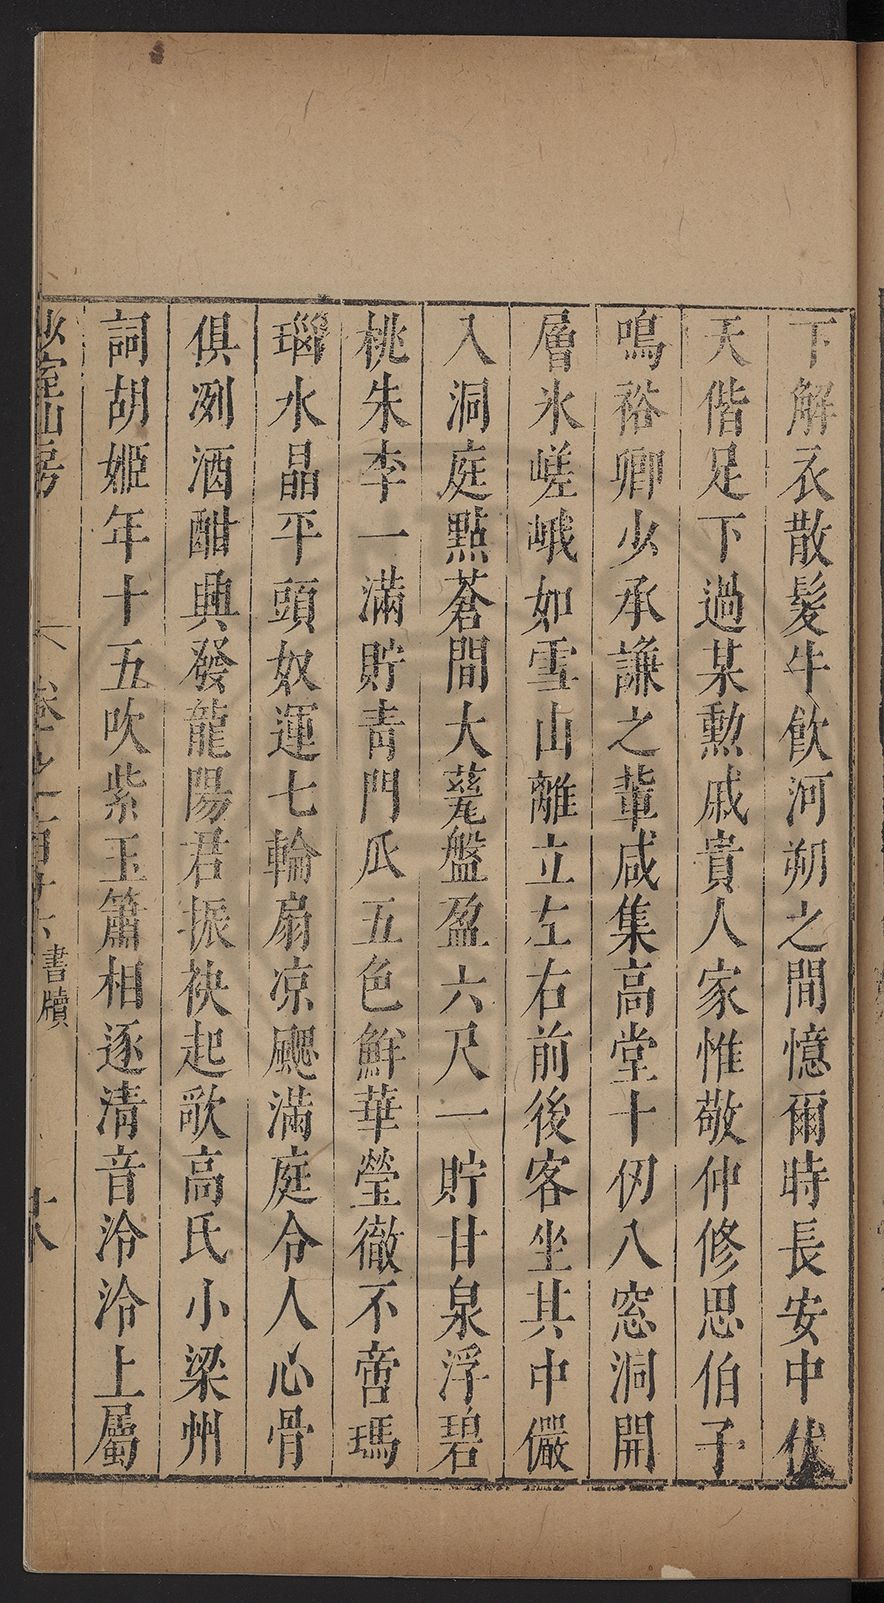 下解衣散髮牛飲河朔之間憶爾時長安中伏
天偕足下過某勲戚貴人家惟敬仲修思伯子
鳴裕卿少承謙之輩咸集高堂十仞八窓洞開
層氷嵯峨如雪山離立左右前後客坐其中儼
入洞庭點蒼間大甆盤盈六尺一貯甘泉浮碧
桃朱李一滿貯青門瓜五色鮮華瑩徹不啻瑪
瑙水晶平頭奴運七輪扇凉颸滿庭令人心骨
俱冽酒酣興發龍陽君振袂起歌高氏小梁州
詞胡姬年十五吹紫玉簫相逐清音泠泠上屬
山房
卷之一百
書牘